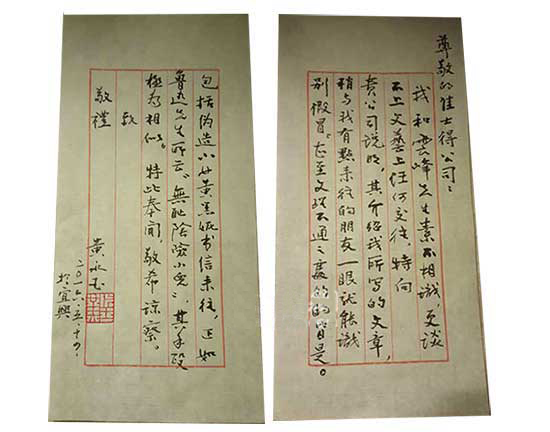 尊敬的佳士得公司:
我和雲峰先生素不相識,更談
不上文藝上任何交往,特向
貴公司说明,其介绍我所写的文章,
稍与我有點来往的朋友一眼就能識
别假冒。甚至文理不通,皆是。
包括伪造小女黄黑妮书信来往,正如
鲁迅先生所云:無恥陰險小兒,其手段
極為相似。特此奉聞,敬希諒察。
致
敬禮
黄永玉
二〇一六.五.十
於宜興